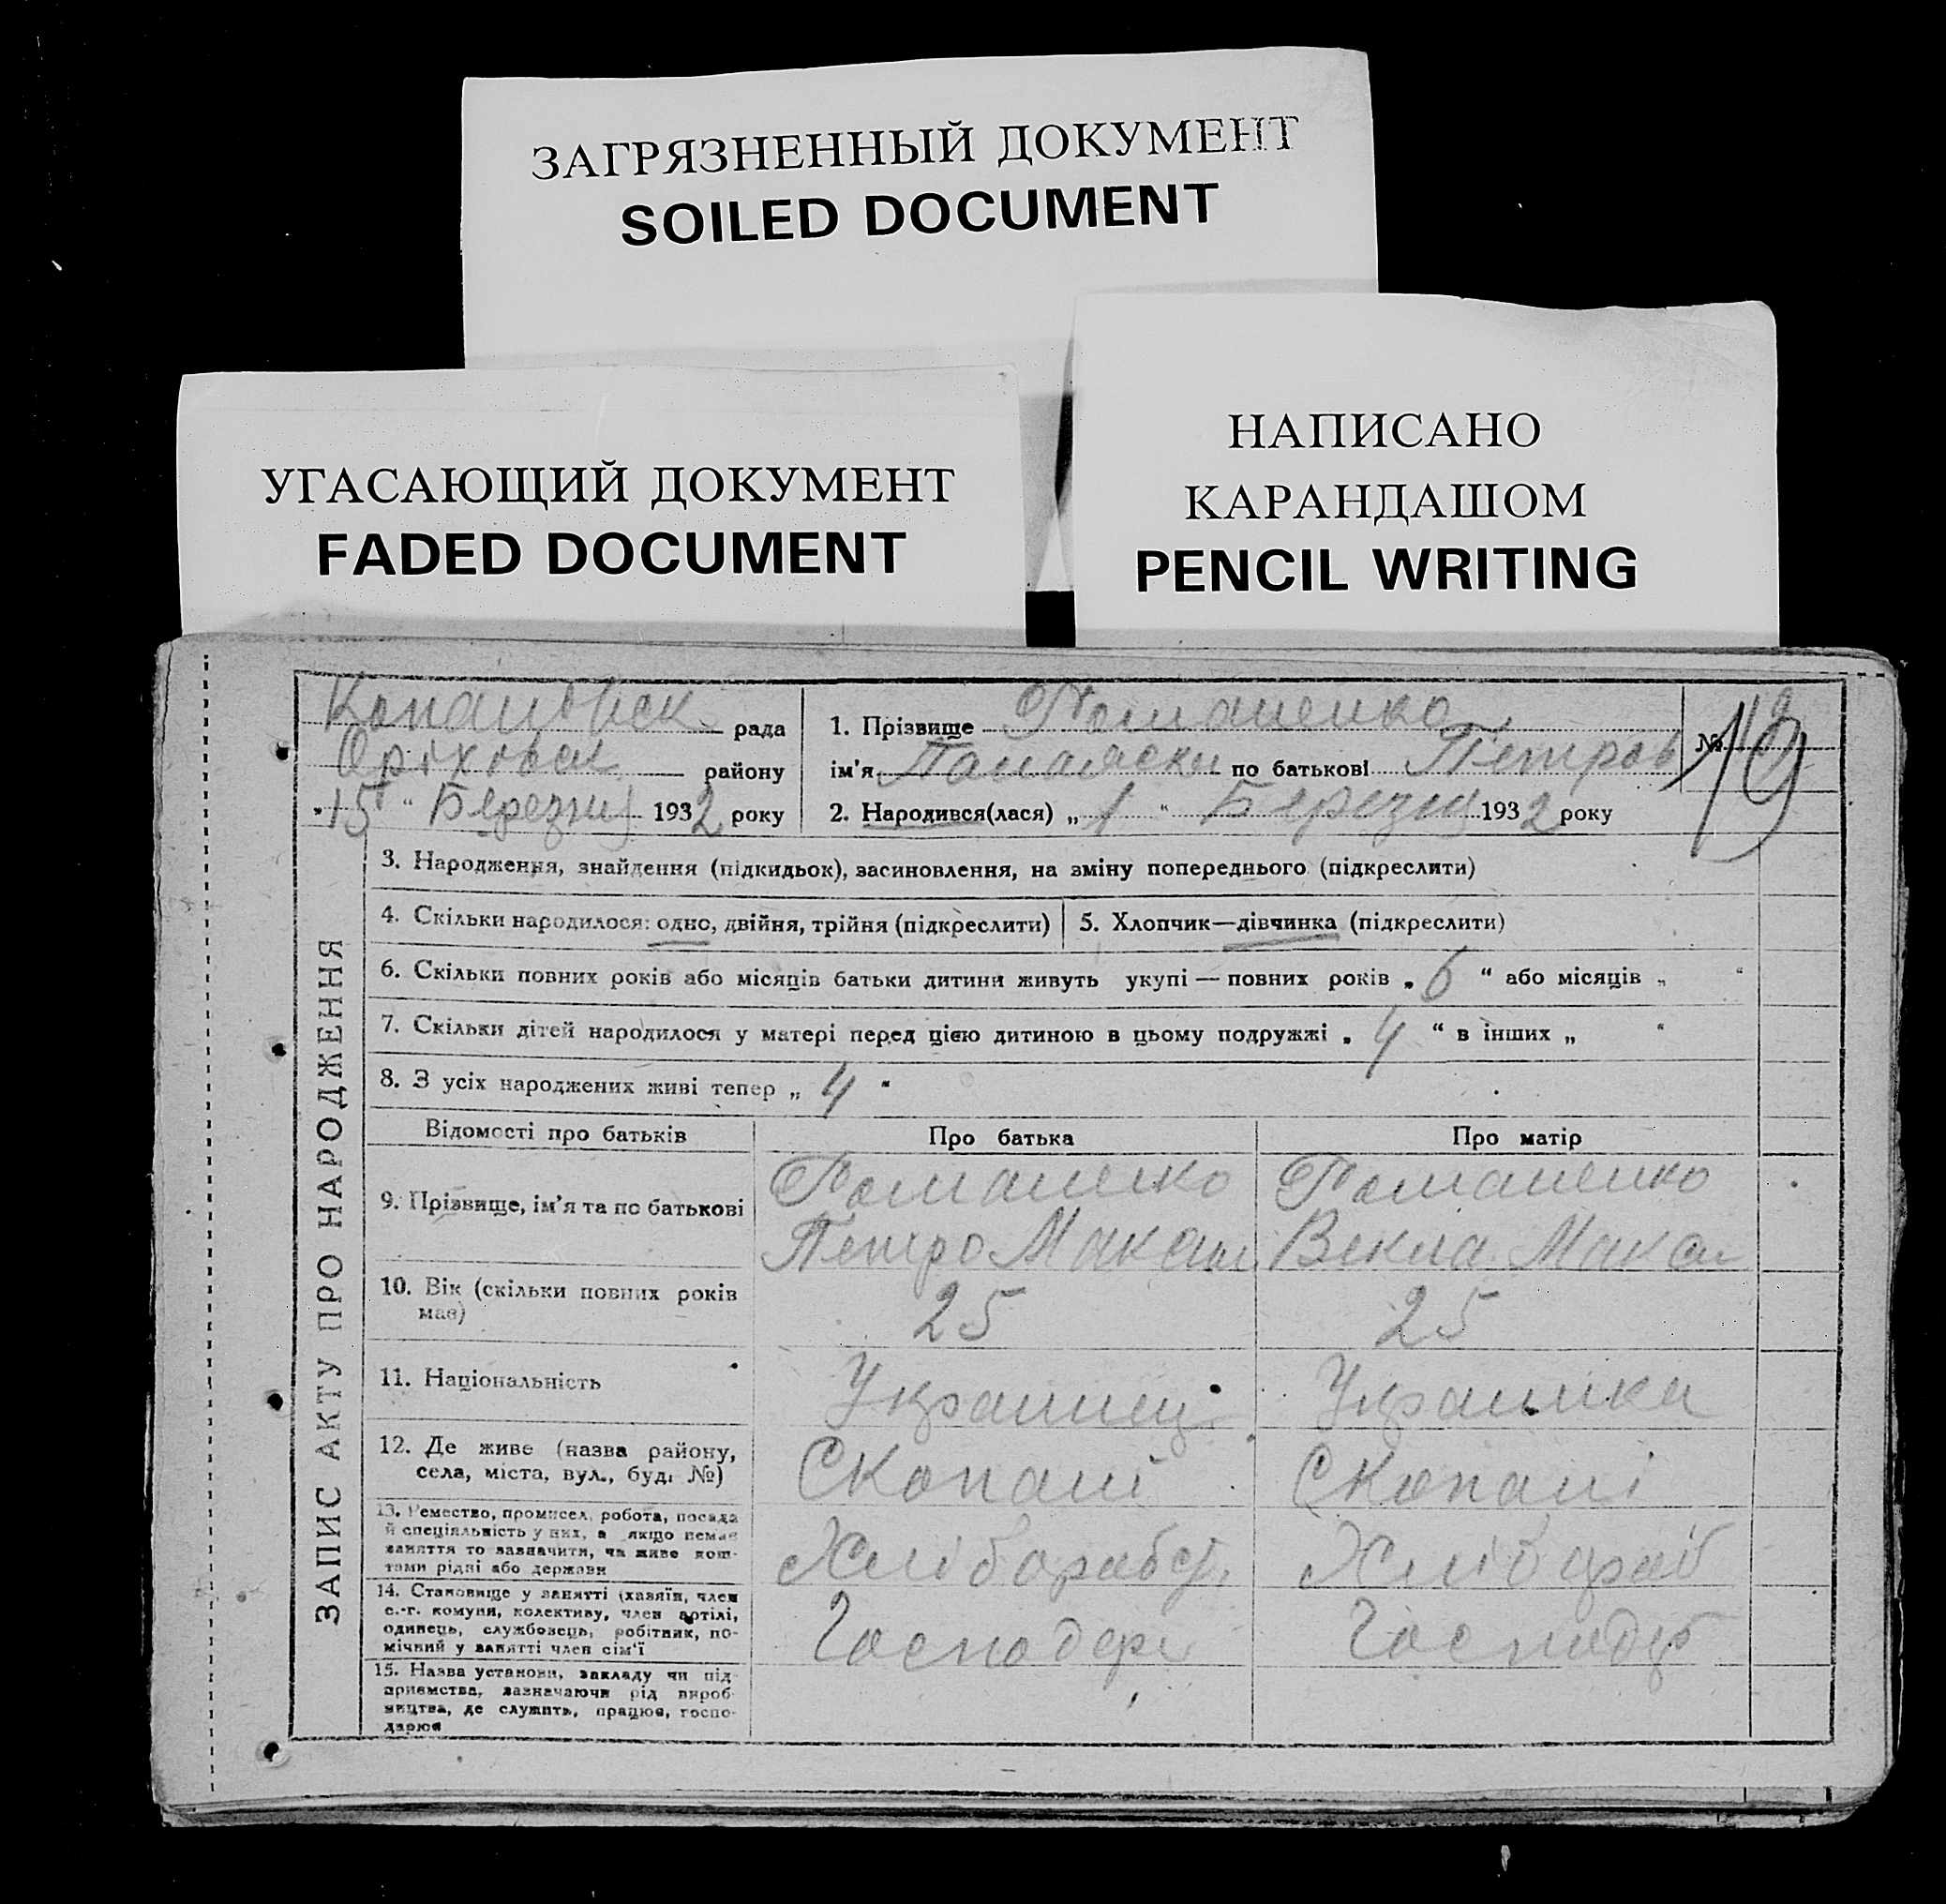 ЗАГРЯЗНЕННЫЙ ДОКУМЕНТ
SOILED DOCUMENT
УГАСАЮЩИЙ ДОКУМЕНТ
FADED DOCUMENT
НАПИСАНО
КАРАНДАШОМ
PENCIL WRITING
ЗАПИС АКТУ ПРО НАРОДЖЕННЯ
Копанівськ рада
Оріхівськ району
"15" Березня 1932 року
1. Прізвище Романенко
ім'я по батькові Петров
2. Народився(лася) „1" Березня 1932 року
№ 19
3. Народження, знайдення (підкидьок), засиновлення, на зміну попереднього (підкреслити)
4. Скільки народилося: одно, двійня, трійня (підкреслити)
5. Хлопчик—дівчинка (підкреслити)
6. Скільки повних років або місяців батьки дитини живуть укупі — повних років „6" або місяців „ "
7. Скільки дітей народилося у матері перед цією дитиною в цьому подружжі „4" в інших „ "
8. З усіх народжених живі тепер „4"
Відомості про батьків Про батька Про матір
9. Прізвище, ім'я та по батькові
Романенко Романенко
Петро Максим Векла Максим
10. Вік (скільки повних років
має)
25 25
11. Національність
Украинец Украинка
12. Де живе (назва району,
села, міста, вул., буд. №)
С Копані С Копані
13. Ремество, промисел, робота, посада
й спеціяльність у них, а якщо немає
заняття то зазначити, чи живе кош-
тами рідні або держави
Хлібороб Хлібороб
14. Становище у занятті (хазяїн, член
с.-г. комуни, колективу, член артілі,
одинець, службовець, робітник, по-
мічний у занятті член сім'ї
Господар Господар
15. Назва установи, закладу чи під-
приємства, зазначаючи рід вироб-
ництва, де служить, працює, госпо-
дарює